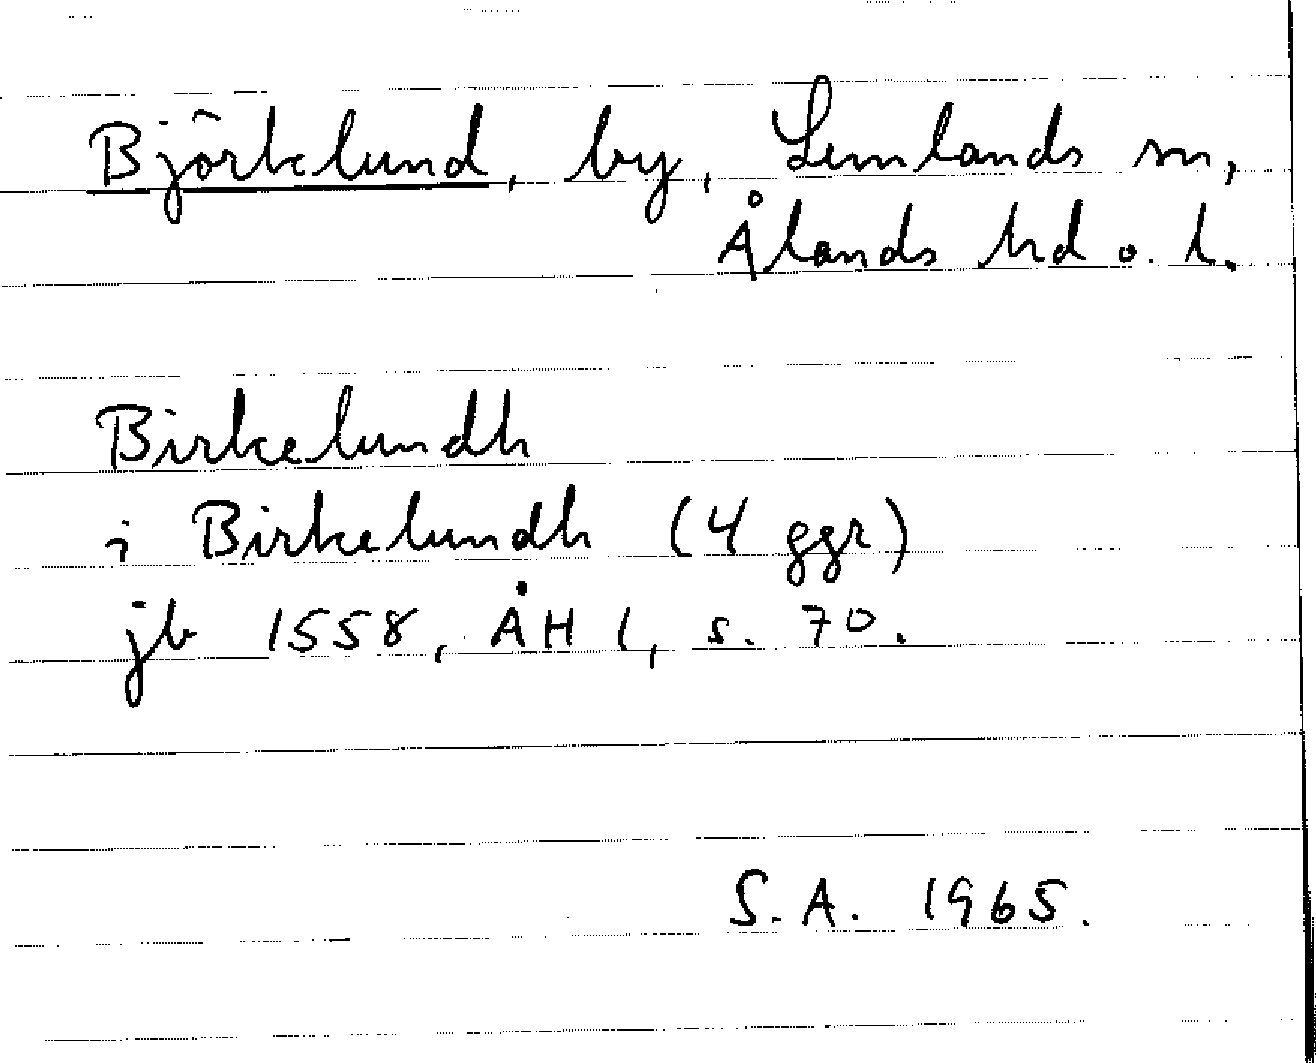 Björklund, by, Lemlands sn,
Ålands hd o. l.
Birkelundh
i Birkelundh (4 ggr)
jb 1558, ÅH 1, s. 70.
S.A. 1965.